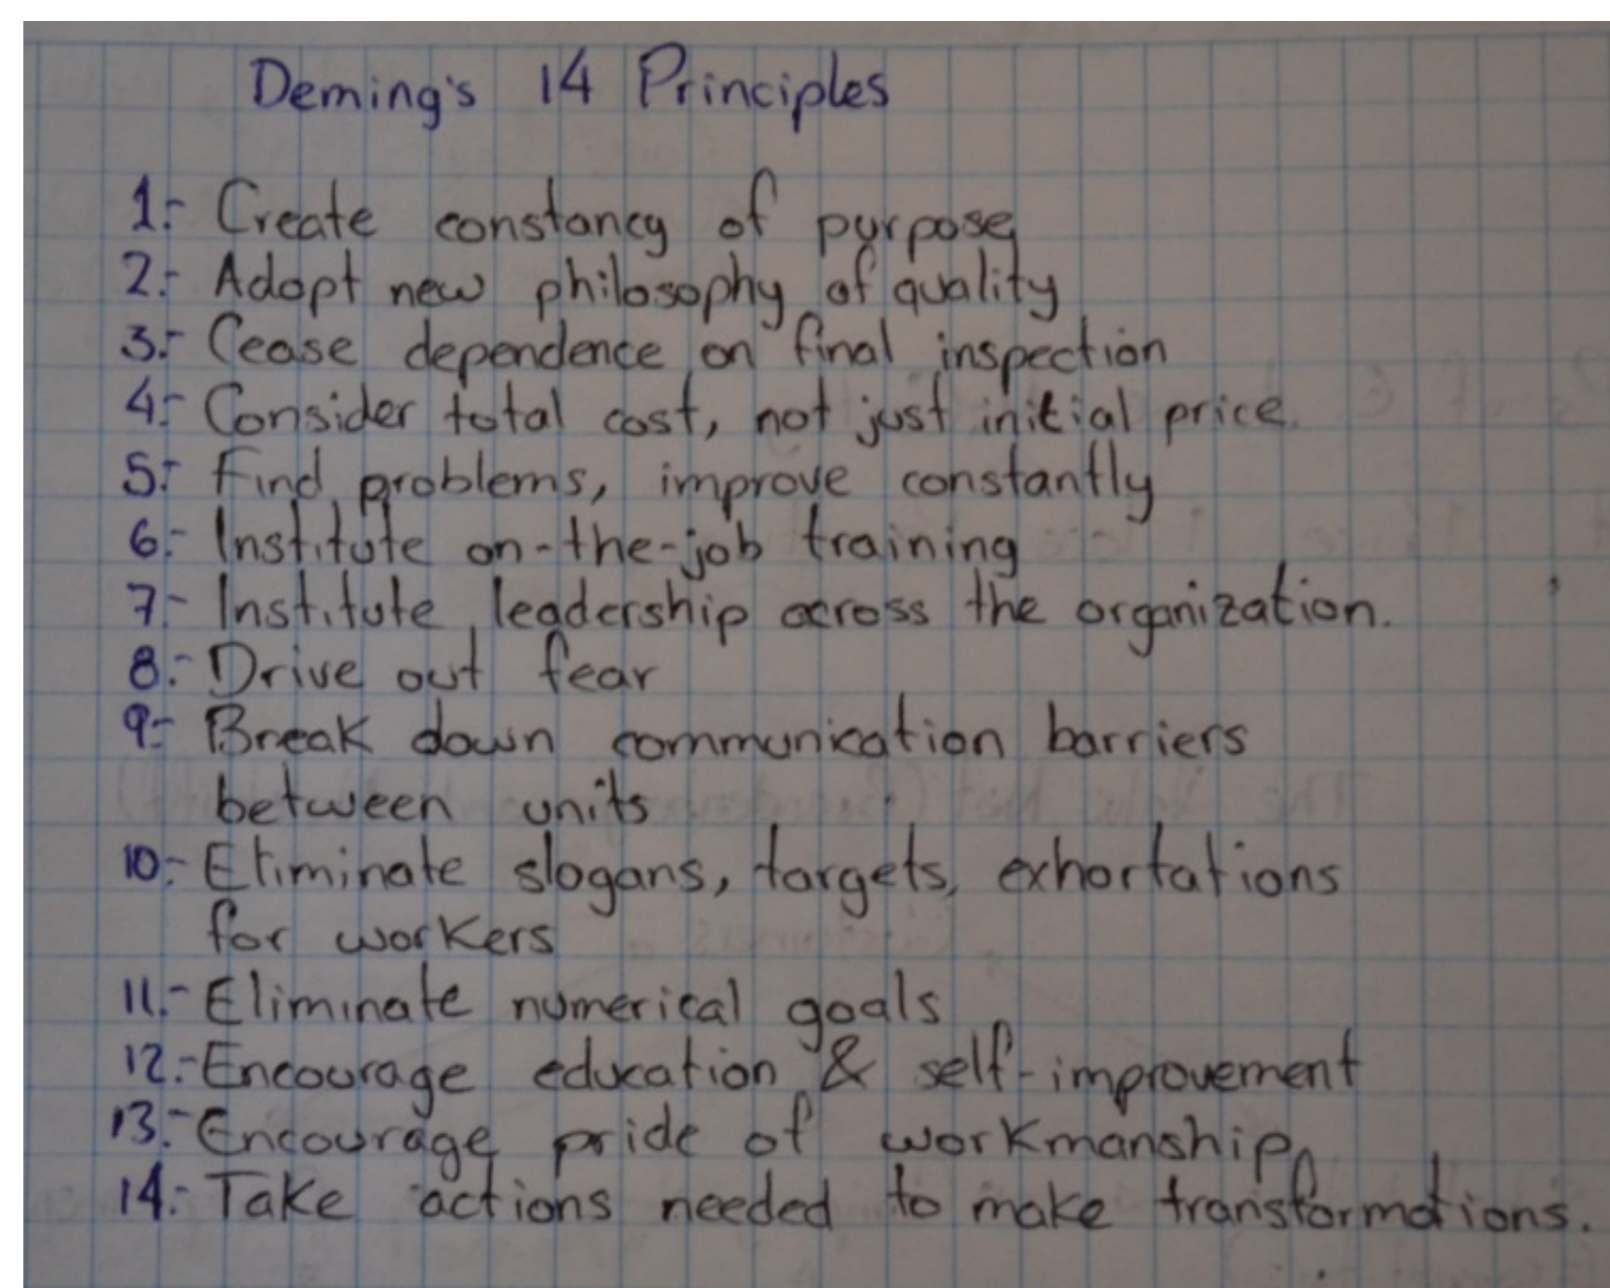 Deming's 14 Principles
1:- Create constancy of purpose
2:- Adopt new philosophy of quality
3:- Cease dependence on final inspection
4:- Consider total cost, not just initial price.
5:- Find problems, improve constantly
6:- Institute on-the-job training
7- Institute leadership across the organization.
8:- Drive out fear
9:- Break down communication barriers
between units
10:- Eliminate slogans, targets, exhortations
for workers
11.- Eliminate numerical goals
12.- Encourage education & self-improvement
13.- Encourage pride of workmanship
14:- Take actions needed to make transformations.